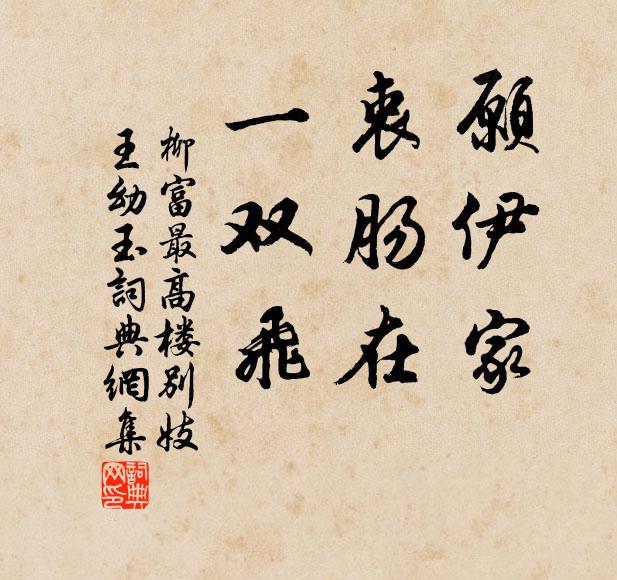 願伊家
衷肠在
一双飛
柳富最高楼别妓
王幼玉詞典網集
詞典网印